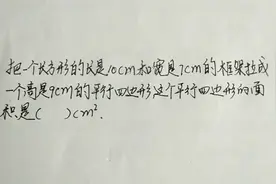 把一个长方形的长是10cm和宽是7cm的框架拉成
一个高是9cm的平行四边形这个平行四边形的面
积是(    )cm².